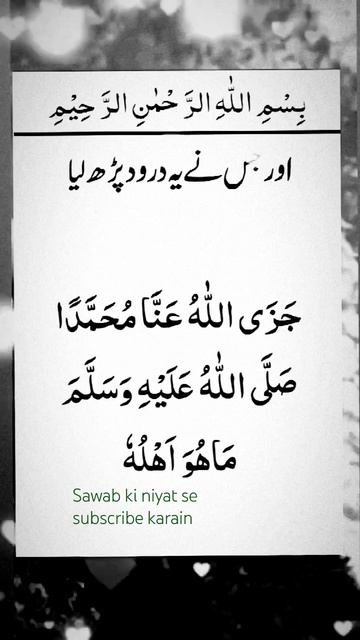 بِسْمِ اللّٰهِ الرَّحْمٰنِ الرَّحِيْمِ
اور جس نے یہ درود پڑھ لیا
جَزَی اللّٰهُ عَنَّا مُحَمَّدًا
صَلَّی اللّٰهُ عَلَیْهِ وَسَلَّمَ
مَاهُوَ اَهْلُهٗ
Sawab ki niyat se
subscribe karain